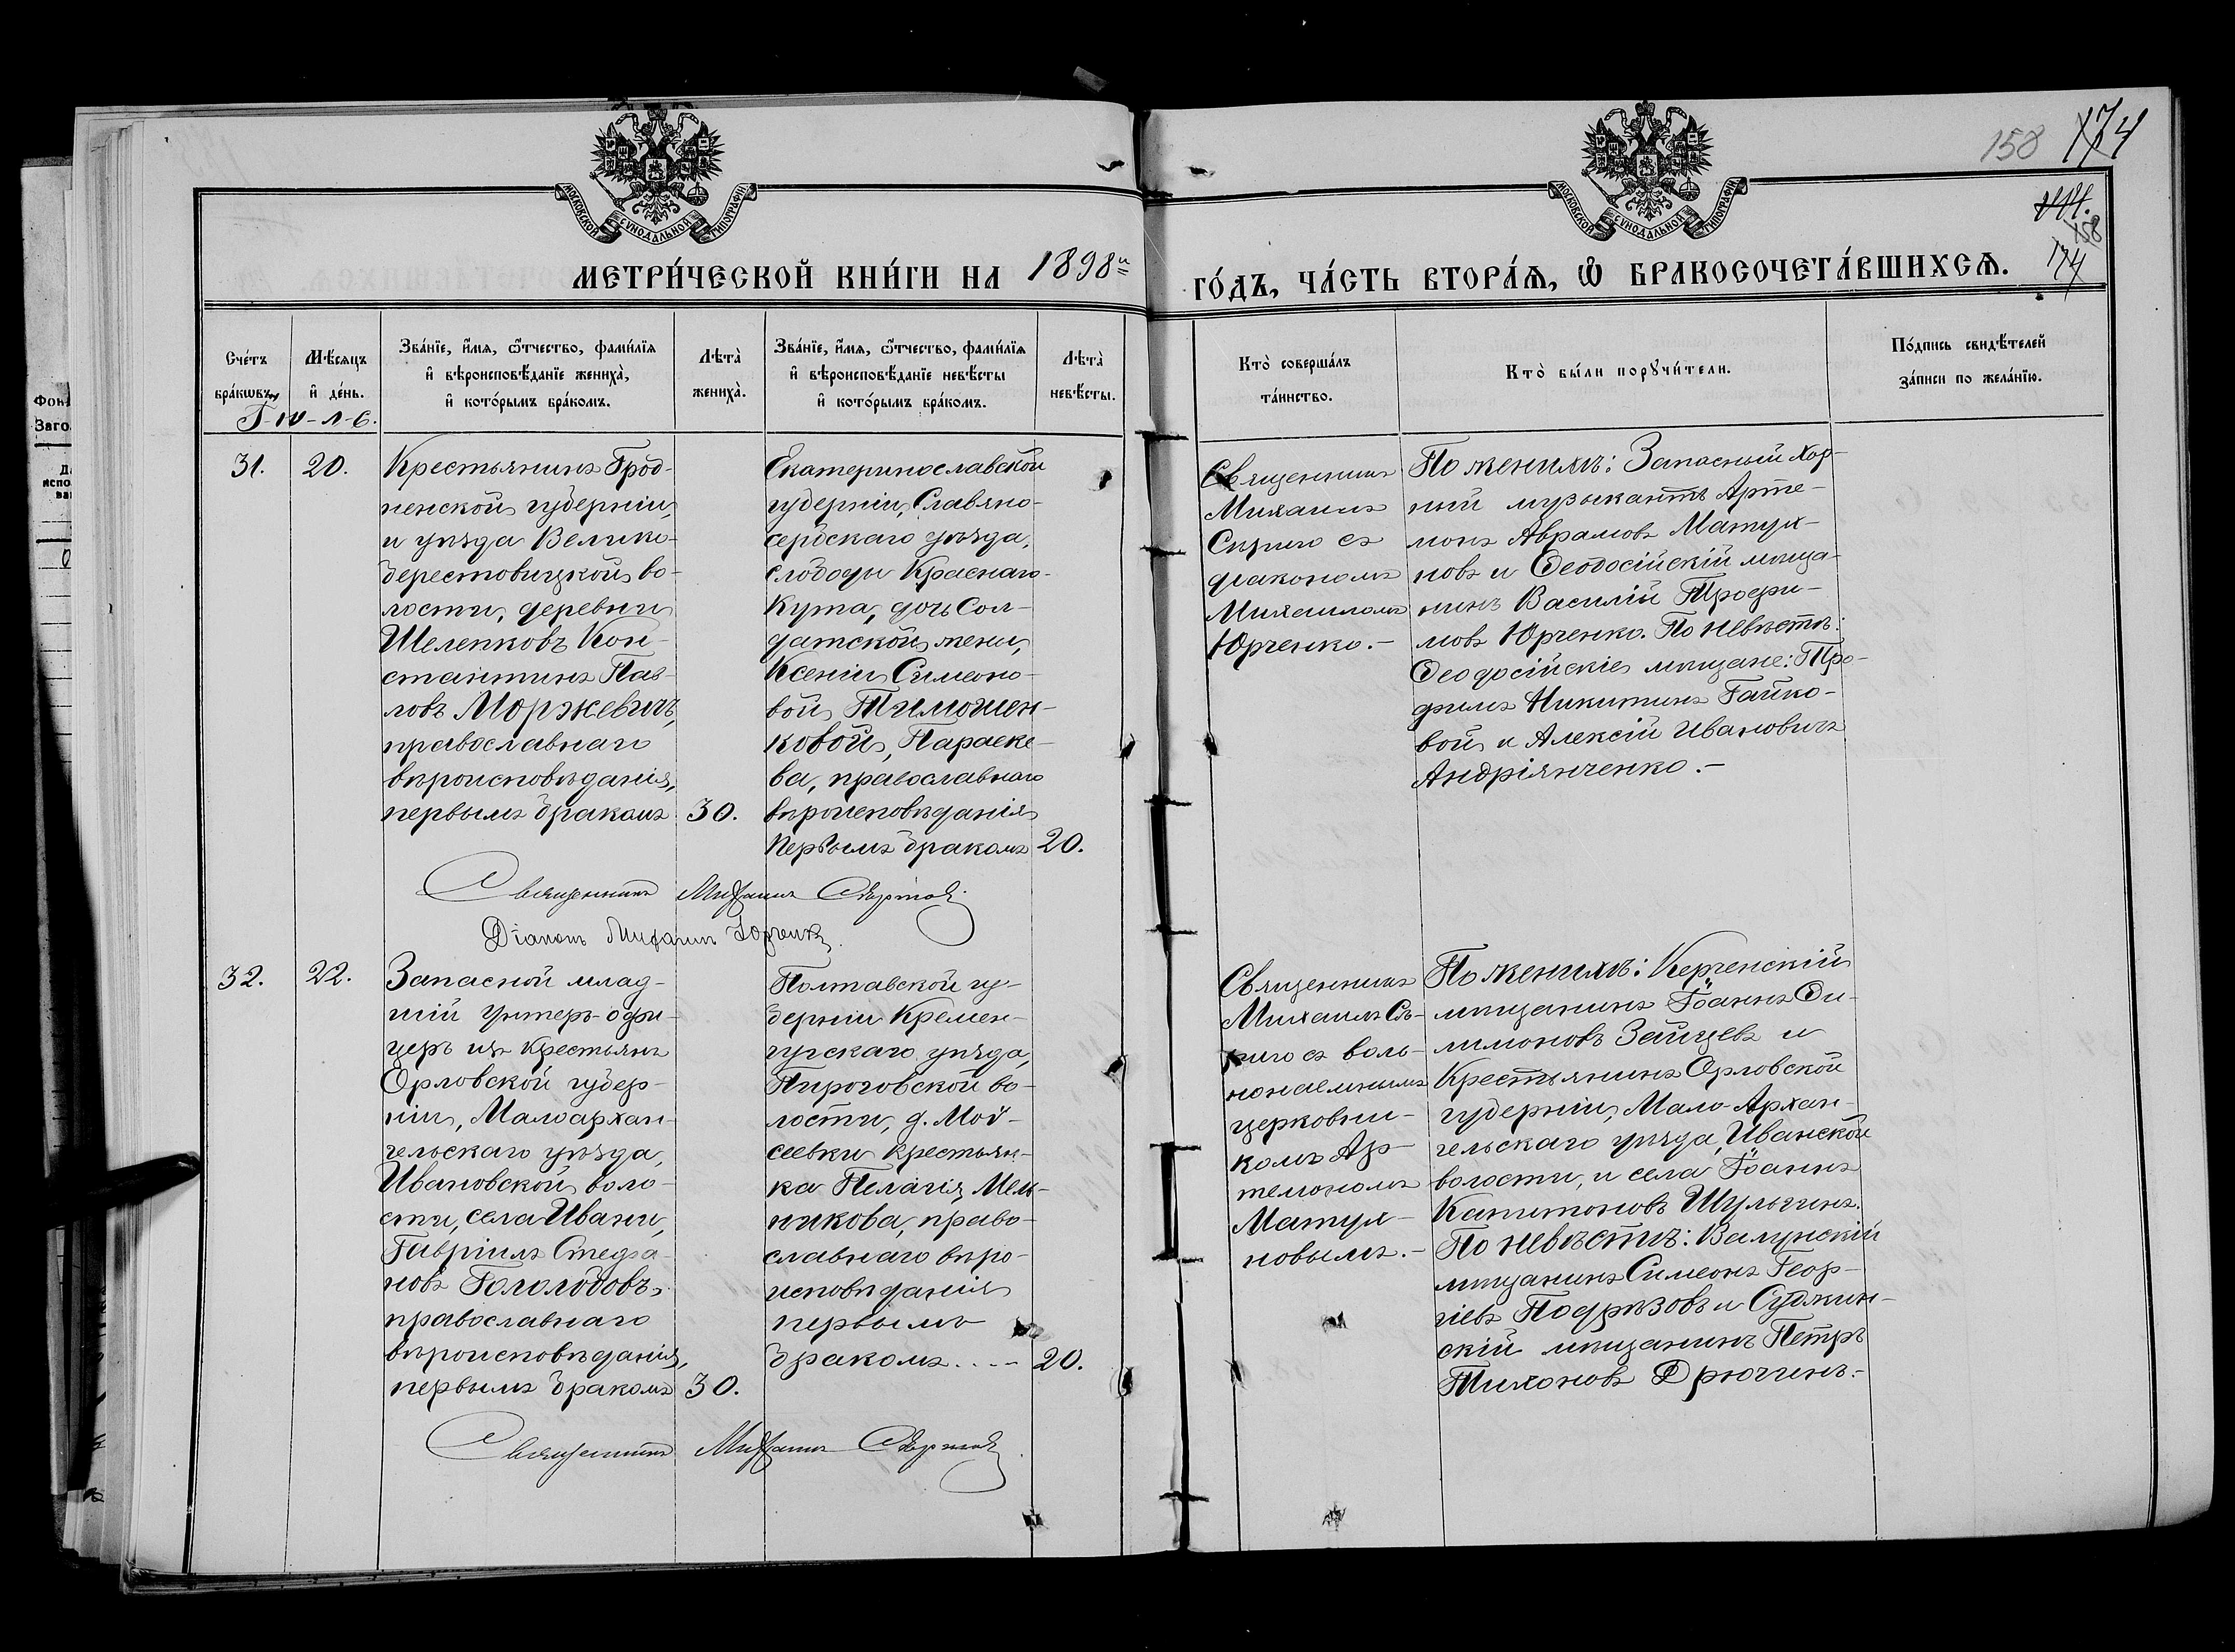 158 174
114.
158
174
МОСКОВСКОЙ СѴНОДАЛЬНОЙ ТИПОГРАФІИ
МОСКОВСКОЙ СѴНОДАЛЬНОЙ ТИПОГРАФІИ
МЕТРИ́ЧЕСКОЙ КНИ́ГИ НА 1898й ГО́ДЪ, ЧА́СТЬ ВТОРА́Ѧ, Ѽ БРАКОСОЧЕТА́ВШИХСѦ.
Сче́тъ бра́кѡвъ.
Мѣ́сяцъ и҆ де́нь.
Зва́нїе, и҆́мя, ѻ҆́тчество, фами́лїя и҆ вѣроисповѣ́данїе жениха̀, и҆ кото́рымъ бра́комъ.
Лѣта̀ жениха̀.
Зва́нїе, и҆́мя, ѻ҆́тчество, фами́лїя и҆ вѣроисповѣ́данїе невѣ́сты и҆ кото́рымъ бра́комъ.
Лѣта̀ невѣ́сты.
Кто̀ соверша́лъ та́инство.
Кто̀ бы́ли порꙋчи́тели.
По́дпись свидѣ́телей за́писи по жела́нїю.
31.
20.
Крестьянинъ Грод-
ненской губерніи,
и уѣзда Велико-
берестовицкой во-
лости, деревни
Шелепковъ Кон-
стантинъ Пав-
ловъ Моржевичъ,
православнаго
вѣроисповѣданія,
первымъ бракомъ
30.
Екатеринославской
губерніи, Славяно-
сербскаго уѣзда,
слободы Краснаго-
Кута, дочь Сол-
датской жены,
Ксеніи Симеоно-
вой Тимошен-
ковой, Параске-
ва, православнаго
вѣроисповѣданія
первымъ бракомъ
20.
Священникъ
Михаилъ
съ
діакономъ
Михаиломъ
Юрченко.-
По женихѣ: Запасный хор-
ный музыкантъ Арте-
монъ Аврамовъ Матух-
новъ и Ѳеодосійскій мѣща-
нинъ Василій Трофи-
мовъ Юрченко. По невѣстѣ:
Ѳеодосійскіе мѣщане: Тро-
фимъ Никитинъ Гайко-
вой и Алексій Ивановичъ
Андріянченко.-
Священникъ Михаилъ
Діаконъ Михаилъ Юрченко.
32.
22.
Запасной млад-
шій унтеръ-офи-
церъ изъ крестьянъ
Орловской губер-
ніи, Малоархан-
гельскаго уѣзда,
Ивановской воло-
сти, села Ивани,
Гавріилъ Стефа-
новъ Гололобовъ,
православнаго
вѣроисповѣданія,
первымъ бракомъ
30.
Полтавской гу-
берніи Кремен-
чугскаго уѣзда,
Пироговской во-
лости, д. Мой-
сеевки крестьян-
ка Пелагія Мель-
никова, право-
славнаго вѣро-
исповѣданія
первымъ
бракомъ....
20.
Священникъ
Михаилъ
съ воль-
нонаемнымъ
церковни-
комъ Ар-
темономъ
Матух-
новымъ.-
По женихѣ: Керченскій
мѣщанинъ Іоаннъ Фи-
лимоновъ Зайцевъ и
Крестьянинъ Орловской
губерніи, Мало-Архан-
гельскаго уѣзда, Иванской
волости, и села Іоаннъ
Капитоновъ Шульгинъ.
По невѣстѣ: Валуйскій
мѣщанинъ Симеонъ Геор-
гіевъ Подрѣзовъ и Суджин-
скій мѣщанинъ Петръ
Тихоновъ Дрючинъ.-
Священникъ Михаилъ